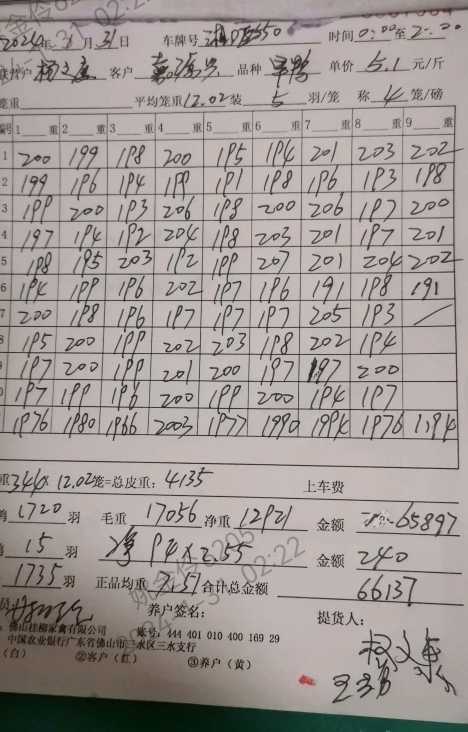 2024年1月31日 车牌号 时间0:00至2:00
客户 品种 单价 5.1 元/斤
笼重 平均笼重12.02装 5 羽/笼 称 4 笼/磅
编号 1 重 2 重 3 重 4 重 5 重 6 重 7 重 8 重 9 重
1 200 199 198 200 195 194 201 203 202
2 199 196 194 199 191 198 196 193 198
3 199 200 193 206 198 200 206 197 200
4 197 194 192 204 198 203 201 197 201
5 198 195 203 192 199 207 201 204 202
6 194 199 196 202 197 196 191 198 191
7 200 198 196 197 197 197 205 193 /
8 195 200 199 202 203 198 202 194
9 197 200 199 201 200 197 197 200
197 199 196 200 199 200 194 197
1976 1980 1966 2003 1977 1990 1994 1976 1194
重344×12.02笼=总皮重:4135 上车费
1720 羽 毛重 17056 净重 12921 金额 65897
15 羽 净94×2.55 金额 240
1735 羽 正品均重 7.51 合计总金额 66137
养户签名: 提货人:
佛山桂柳家禽有限公司 账号:444 401 010 400 169 29
中国农业银行广东省佛山市三水区三水支行
(白) ②客户(红) ③养户(黄)